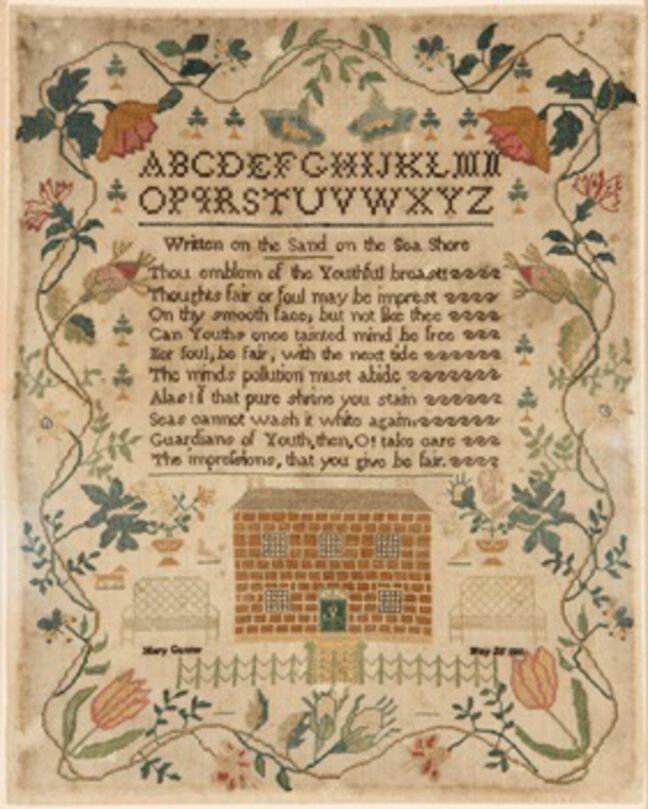 ABCDEFGHIJKLMN
OPQRSTUVWXYZ
Written on the Sand on the Sea Shore
Thou emblem of the Youthful breast
Thoughts fair or foul may be imprest
On thy smooth face, but not like thee
Can Youths once tainted mind be free
For foul, be fair, with the next tide
The minds pollution must abide
Alas! if that pure shrine you stain
Seas cannot wash it white again.
Guardians of Youth, then, O! take care
The impressions, that you give be fair.
Mary
May